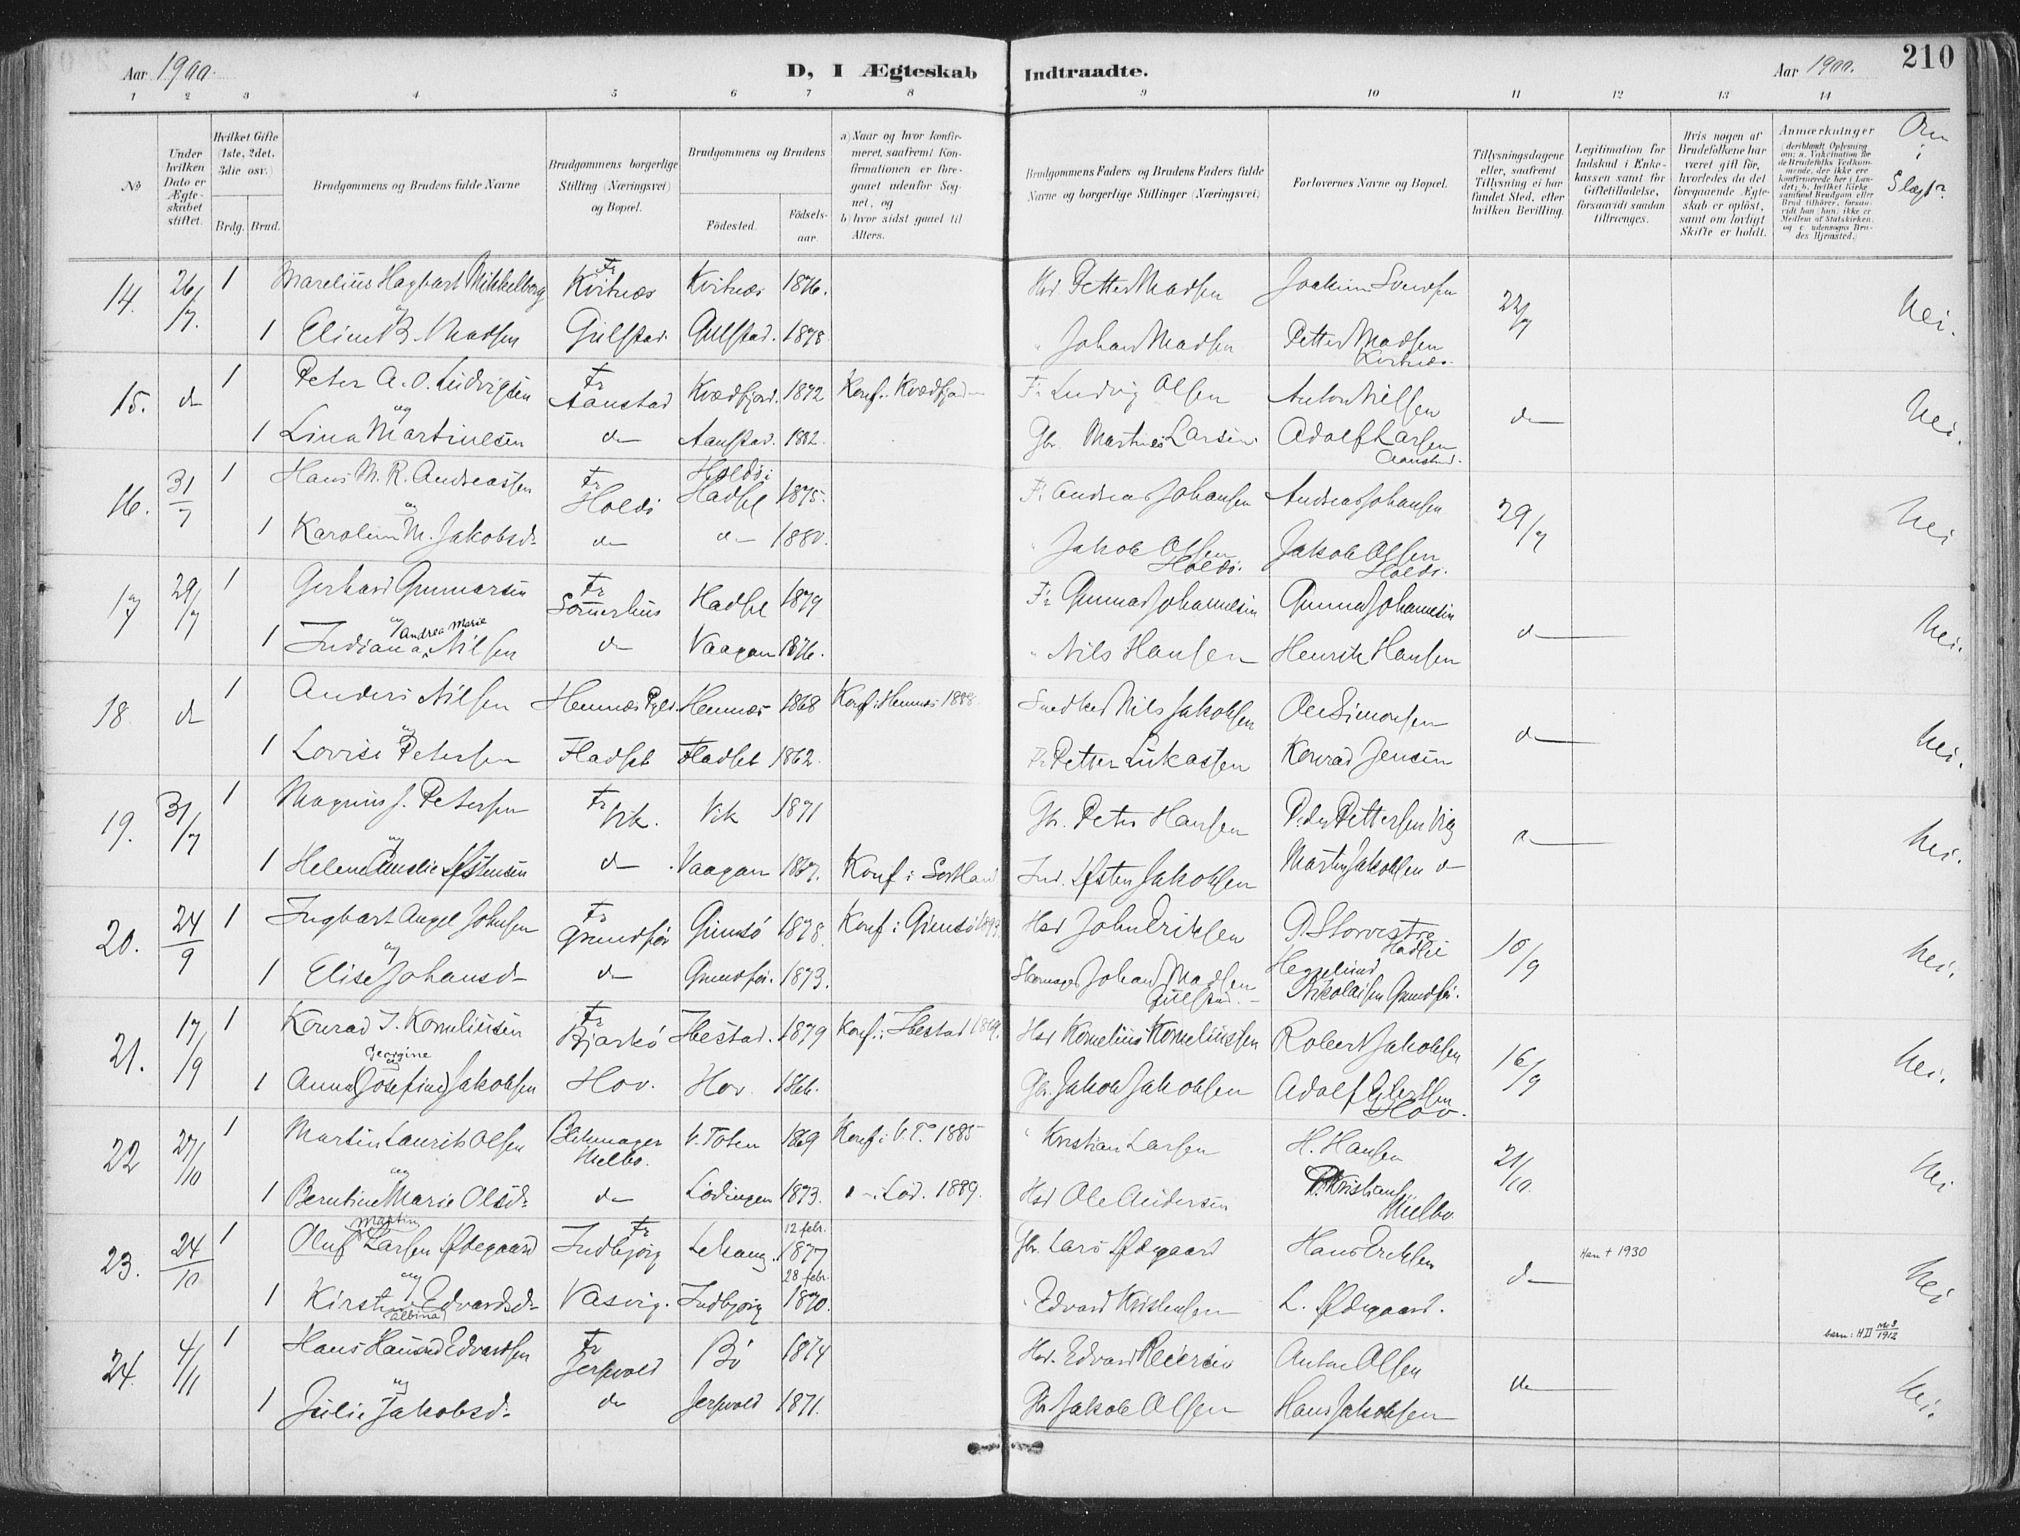 Aar 1900.
D, I Ægteskab
Indtraadte.
Aar 1900.
210
1 2 3 4 5 6 7 8 9 10 11 12 13 14
No
Under hvilken Dato er Ægteskabet stiftet.
Hvilket Gifte (1ste, 2det, 3die osv.)
Brdg. Brud.
Brudgommens og Brudens fulde Navne
Brudgommens borgerlige Stilling (Næringsvei) og Bopæl.
Brudgommens og Brudens
Fødested.
Fødselsaar.
a) Naar og hvor konfirmeret, saafremt Konfirmationen er foregaaet udenfor Sognet, og
b) hvor sidst gaaet til Alters.
Brudgommens Faders og Brudens Faders fulde Navne og borgerlige Stillinger (Næringsvei)
Forlovernes Navne og Bopæl.
Tillysningsdagene eller, saafremt Tillysning ei har fundet Sted, efter hvilken Bevilling.
Legitimation for Indskud i Enkekassen samt for Giftetilladelse, forsaavidt saadan tiltrænges.
Hvis nogen af Brudefolkene har været gift før, hvorledes da det foregaaende Ægteskab er opløst, samt om lovligt Skifte er holdt.
Anmærkninger (deriblandt Oplysning om: a. Vakcination for de Brudefolks Vedkommende, der ikke ere konfirmerede her i Landet; b. hvilket Kirkesamfund Brudgom eller Brud tilhører, forsaavidt han/hun ikke er Medlem af Statskirken, og c. udensogns Brudes Hjemsted.)
Om i Slægt?
14. 26/7. 1 Marelius Hagbart Mikkelborg Fr Kvitnæs Kvitnæs 1876. Hsd Petter Madsen Joakim Svendsen 22/7 Nei.
og
1 Eline B. Madsen Gulstad Gulstad. 1878. " Johan Madsen Petter Madsen Kvitnæs.
15. d 1 Peter A. O. Ludvigsen Fr Aanstad Kvædfjord. 1872 Konf. i Kvædfjord Fr Ludvig Olsen Anton Nilsen d Nei.
og
1 Lina Martinesen d Aanstad. 1882. Gbr. Martines Larsen Adolf Larsen Aanstad.
16. 31/7 1 Hans M. R. Andreassen Fr Holdø Holdø i Hadsel 1875. Fr Andreas Johansen Andreas Johansen 29/7 Nei
og
1 Karoline M. Jakobsd. d d 1880. " Jakob Olsen Holdø. Jakob Olsen Holdø.
17 29/7 1 Gerhard Gunnarsen Fr Sommerhus Hadsel 1879 Fr Gunnar Johannesen Gunnar Johannesen d Nei.
og Andrea Marie
1 Indiana Nilsen d Vaagan 1876. " Nils Hansen Henrik Hansen
18. d 1 Anders Nilsen Hemnæs Hemnæs 1868 Konf. i Hemnæs 1883. Snedker Nils Jakobsen Ole Simonsen d Nei.
og
1 Lovise Petersen Fladset Fladset 1862. Petter Lukassen Konrad Jensen
19. 31/7 1 Magnus J. Petersen Fr Vik. Vik 1871 Gbr. Peter Hansen Peder Pettersen Vig d Nei.
og
1 Helene Amalie Østensen d Vaagan 1867. Konf. i Sortland Ind. Østen Jakobsen Martin Jakobsen d
20. 24/9 1 Ingbart Angel Johnsen Fr Grundfør Gimsø 1878. Konf. i Gimsø Hsd John Eriksen P Storvestre Hadsel 10/9 Nei.
og
1 Elise Johansd d Grundfør. 1873. Skomager Johan Madsen Gulstad. Hegelund Nikolaisen Grundfør.
21. 17/9 1 Konrad I. Korneliussen Fr Bjarkø Ibestad. 1879 Konf. i Ibestad Hsd Kornelius Korneliussen Robert Jakobsen 16/9 Nei.
Georgine og
1 Anna (Josefine) Jakobsen Hov. Hov. Gbr. Jakob Jakobsen Adolf Hov.
22 27/10 1 Martin Laurits Olsen Blikmager Melbo. V. Toten 1869 Konf. i V. T. 1885 " Kristian Larsen H. Hansen 21/10. Nei
og
1 Berntine Marie Olsd. d Lødingen 1873. i Lød. 1889. Hsd Ole Andersen P. Kristians Melbo
23. 24/10 1 Oluf Martin Larsen Ødegaard Fr Indbjörg 12 febr. 1877 Gbr. Lars Ødegaard Hans Eriksen d Han + 1930 Nei
og
1 Kirstine (Albina) Edvardsd Vasvig. Indbjörg 28 febr. 1870. " Edvard Kristensen L. Ødegaard.
barn: H II No 3 1912
24. 4/11 1 Hans Hansrd Edvardsen Fr Jerpvold Bö 1874 Hsd. Edvard Reiersen Anton Olsen d Nei.
og
1 Julie Jakobsd. d Jerpvold 1871. Gbr Jakob Olsen Hans Jakobsen